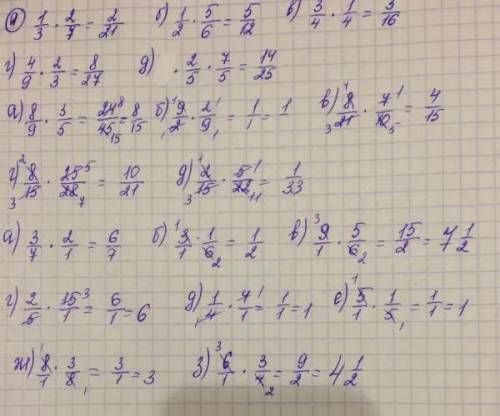 ① 1/3 · 2/7 = 2/21 б) 1/2 · 5/6 = 5/12 в) 3/4 · 1/4 = 3/16
г) 4/9 · 2/3 = 8/27 д) · 2/5 · 7/5 = 14/25
а) 8/9 · 3/5 = 24 8/45 15 = 8/15 б) 1 9/2 1 · 2 1/9 1 = 1/1 = 1 в) 1 8/21 3 · 7 1/10 5 = 4/15
г) 2 8/15 3 · 25 5/28 7 = 10/21 д) 1 2/15 3 · 5 1/22 11 = 1/33
а) 3/7 · 2/1 = 6/7 б) 1 3/1 · 1/6 2 = 1/2 в) 3 9/1 · 5/6 2 = 15/2 = 7 1/2
г) 2/5 · 15 3/1 = 6/1 = 6 д) 1/4 1 · 4 1/1 = 1/1 = 1 е) 1 5/1 · 1/5 1 = 1/1 = 1
ж) 1 8/1 · 3/8 1 = 3/1 = 3 з) 3 6/1 · 3/4 2 = 9/2 = 4 1/2